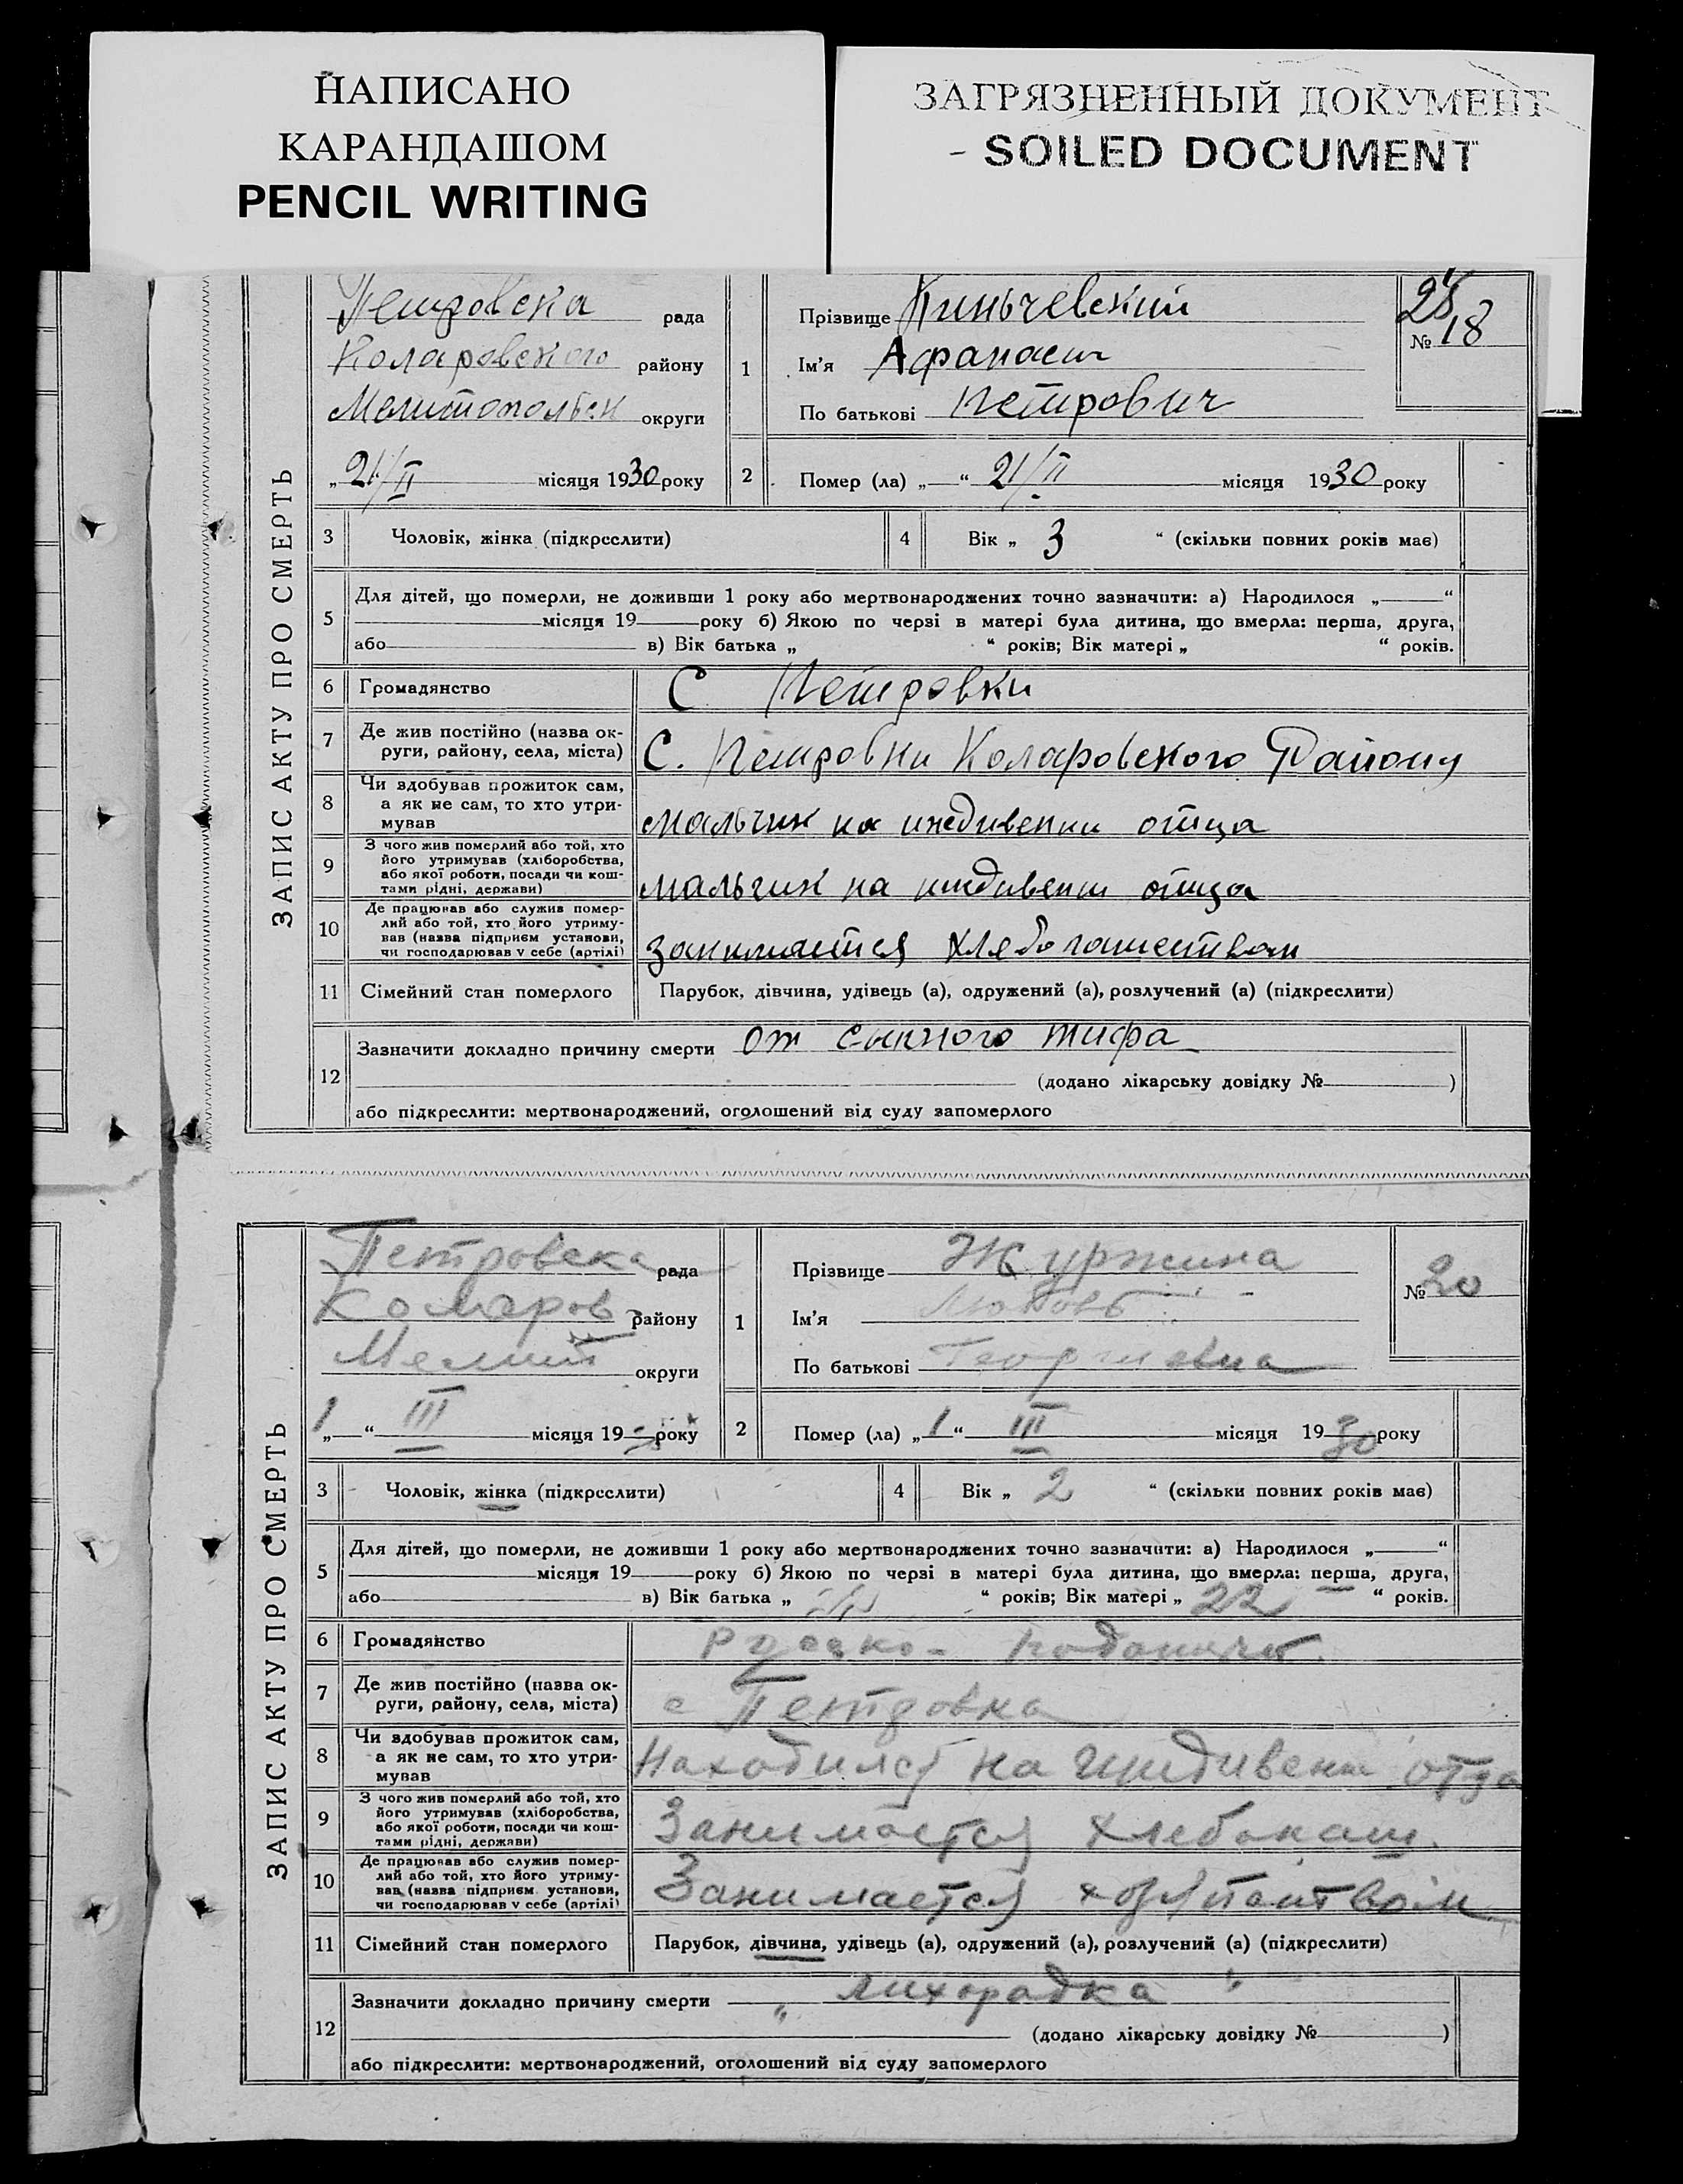 НАПИСАНО
КАРАНДАШОМ
PENCIL WRITING
ЗАГРЯЗНЕННЫЙ ДОКУМЕНТ
- SOILED DOCUMENT
ЗАПИС АКТУ ПРО СМЕРТЬ
Петровска рада
Коларовского району
Мелитопольск округи
„21/II місяця 1930 року
1 Прізвище
Ім'я Афанасий
По батькові Петрович
№ 18
2 Помер (ла) „—“ 21/II місяця 1930 року
3 Чоловік, жінка (підкреслити)
4 Вік „ 3 “ (скільки повних років має)
5 Для дітей, що померли, не доживши 1 року або мертвонароджених точно зазначити: а) Народилося „——“
місяця 19 року б) Якою по черзі в матері була дитина, що вмерла: перша, друга,
або в) Вік батька „ “ років; Вік матері „ “ років.
6 Громадянство С Петровки
7 Де жив постійно (назва округи, району, села, міста) С. Петровки Коларовского Району
8 Чи здобував прожиток сам, а як не сам, то хто утримував мальчик на иждивении отца
9 З чого жив померлий або той, хто його утримував (хліборобства, або якої роботи, посади чи коштами рідні, держави) мальчик на иждивении отца
10 Де працював або служив померлий або той, хто його утримував (назва підприєм установи, чи господарював у себе (артілі) занимается
11 Сімейний стан померлого Парубок, дівчина, удівець (а), одружений (а), розлучений (а) (підкреслити)
12 Зазначити докладно причину смерти от сыпного тифа
(додано лікарську довідку № )
або підкреслити: мертвонароджений, оголошений від суду запомерлого
ЗАПИС АКТУ ПРО СМЕРТЬ
Петровска рада
Коларов району
Мелит округи
1 „—“ III місяця 19 року
1 Прізвище Журжина
Ім'я Любовь
По батькові Георгиевна
№ 20
2 Помер (ла) „1“ III місяця 1930 року
3 Чоловік, жінка (підкреслити)
4 Вік „ 2 “ (скільки повних років має)
5 Для дітей, що померли, не доживши 1 року або мертвонароджених точно зазначити: а) Народилося „——“
місяця 19 року б) Якою по черзі в матері була дитина, що вмерла: перша, друга,
або в) Вік батька „ “ років; Вік матері „ 22 “ років.
6 Громадянство
7 Де жив постійно (назва округи, району, села, міста) с Петровка
8 Чи здобував прожиток сам, а як не сам, то хто утримував Находился на иждивени отца
9 З чого жив померлий або той, хто його утримував (хліборобства, або якої роботи, посади чи коштами рідні, держави) Занимается хлебопаш.
10 Де працював або служив померлий або той, хто його утримував (назва підприєм. установи, чи господарював у себе (артілі) Занимается
11 Сімейний стан померлого Парубок, дівчина, удівець (а), одружений (а), розлучений (а) (підкреслити)
12 Зазначити докладно причину смерти „ лихорадка “
(додано лікарську довідку № )
або підкреслити: мертвонароджений, оголошений від суду запомерлого